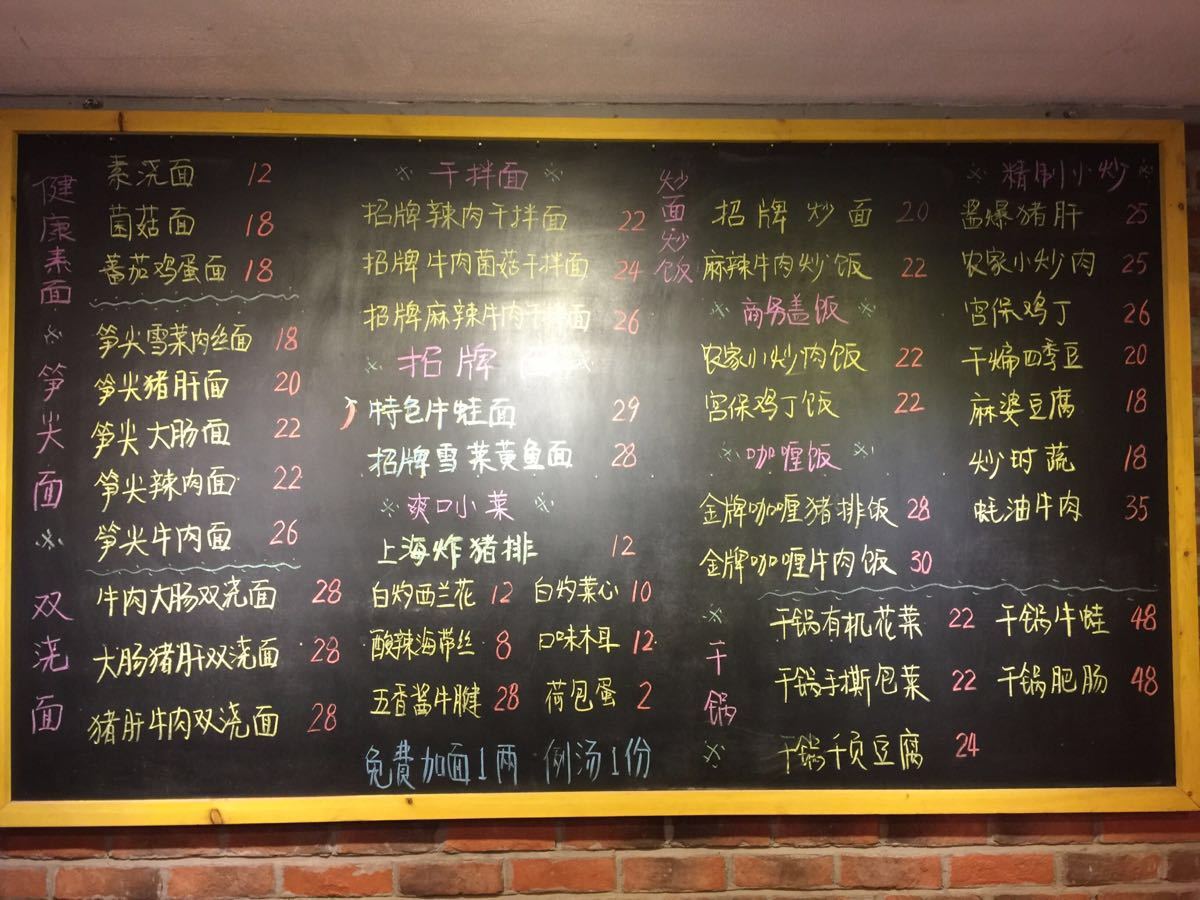 健康素面
素浇面 12
菌菇面 18
蕃茄鸡蛋面 18
笋尖面
笋尖雪菜肉丝面 18
笋尖猪肝面 20
笋尖大肠面 22
笋尖辣肉面 22
笋尖牛肉面 26
双浇面
牛肉大肠双浇面 28
大肠猪肝双浇面 28
猪肝牛肉双浇面 28
干拌面
招牌辣肉干拌面 22
招牌牛肉菌菇干拌面 24
招牌麻辣牛肉干拌面 26
招牌
特色牛蛙面 29
招牌雪菜黄鱼面 28
爽口小菜
上海炸猪排 12
白炒西兰花 12 白炒菜心 10
酸辣海带丝 8 口味木耳 12
五香酱牛腱 28 荷包蛋 2
免費加面1两 例汤1份
炒面炒饭
招牌炒面 20
麻辣牛肉炒饭 22
商务盖饭
农家小炒肉饭 22
宫保鸡丁饭 22
咖喱饭
金牌咖喱猪排饭 28
金牌咖喱牛肉饭 30
精制小炒
爆猪肝 25
农家小炒肉 25
宫保鸡丁 26
干煸四季豆 20
麻婆豆腐 18
炒时蔬 18
蚝油牛肉 35
干锅
干锅有机花菜 22 干锅牛蛙 48
干锅手撕包菜 22 干锅肥肠 48
干锅千页豆腐 24